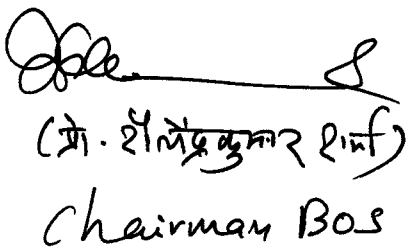 (प्रो. शैलेंद्रकुमार शर्मा)
Chairman BOS